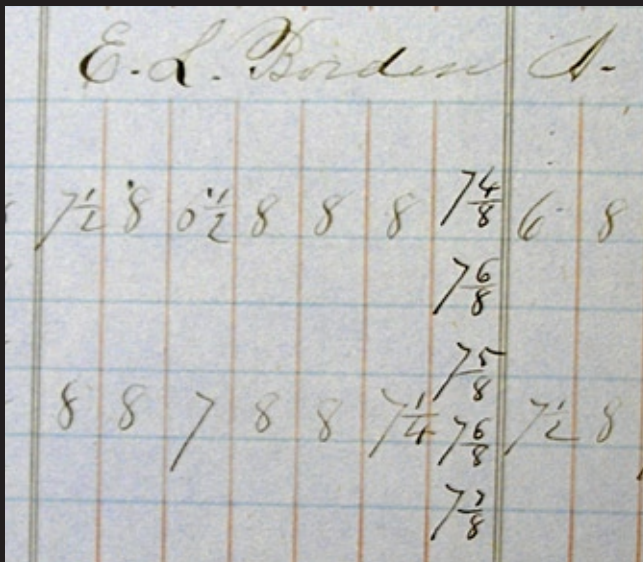 E. L. Borden A.
7½ 8 0½ 8 8 8 7 4/8 6 8
7 6/8
7 5/8
8 8 7 8 8 7¼ 7 6/8 7½ 8
7 7/8